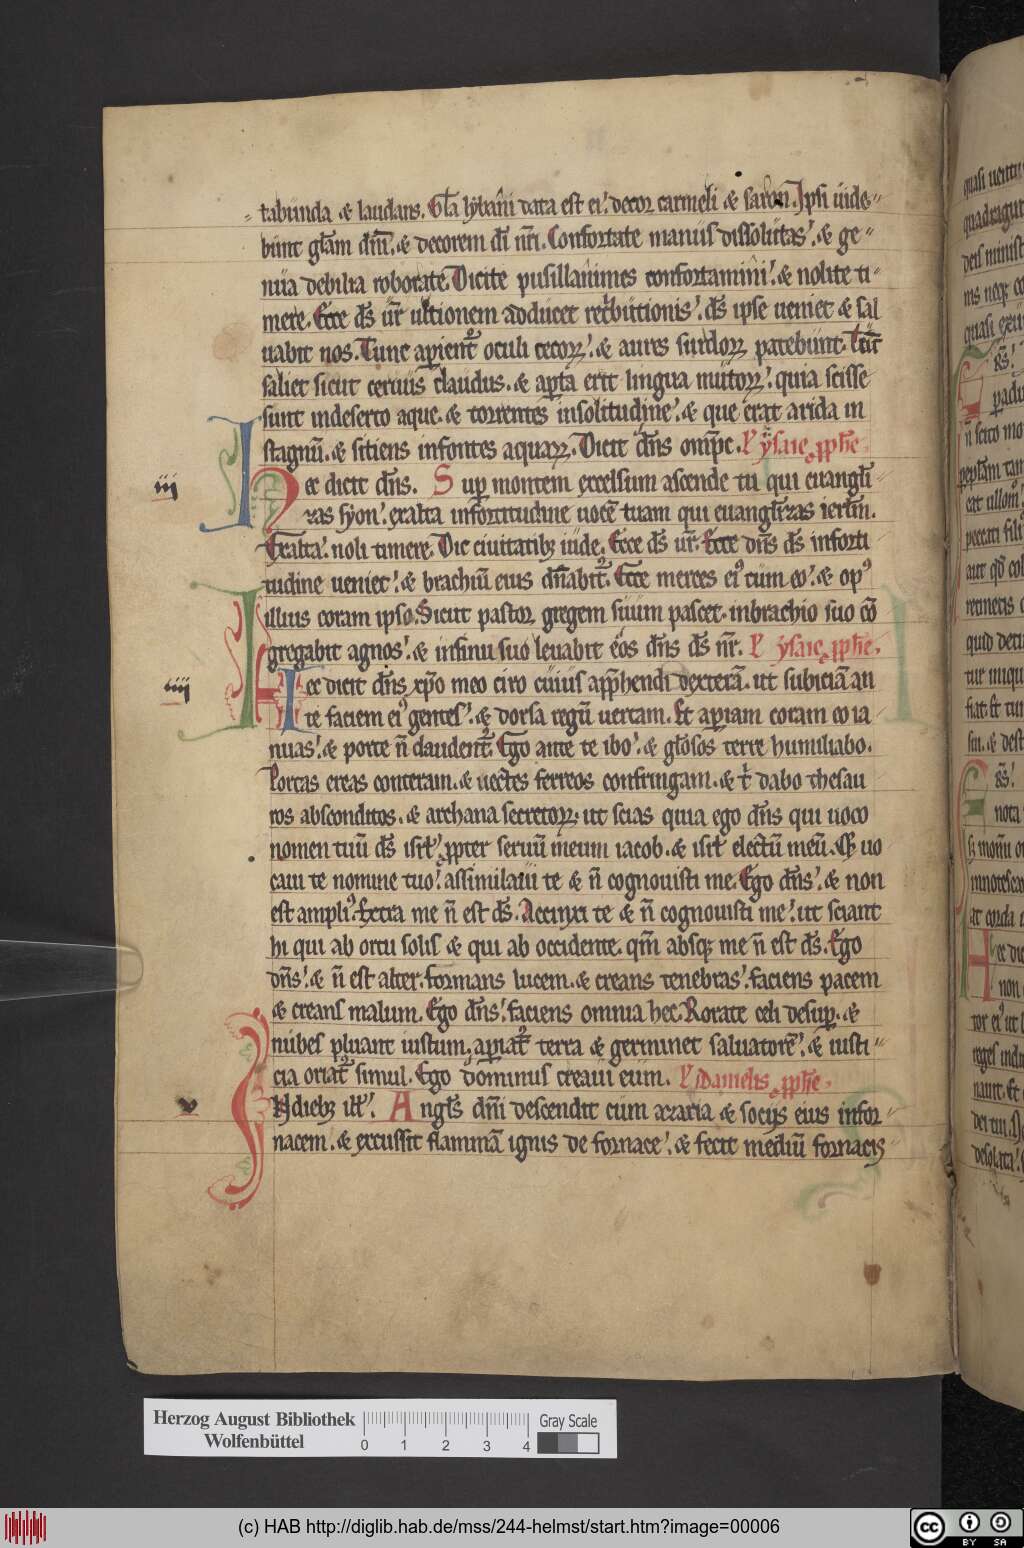 tabunda & laudans. Gl̅a lybani data est ei: decor carmeli & saron. Ipsi uide-
bunt gl̅am dn̅i. & decorem di̅ nr̅i. Confortate manus dissolutas: & ge-
nua debilia roborate. Dicite pusillanimes confortamini: & nolite ti-
mere. Ecce ds̅ ur̅ ultionem adducet retͥbutionis: ds̅ ipse ueniet & sal
uabit nos. Tunc aꝑient᷑ oculi cecoꝝ: & aures surdoꝝ patebunt. Tu̅c
saliet sicut ceruus claudus. & aꝑta erit lingua mutoꝝ: quia scisse
sunt indeserto aque. & torrentes insolitudine: & que erat arida in
stagnu̅. & sitiens infontes aquaꝝ. Dicit dn̅s omp̅c. L̅ ysaie ꝓph̅e.
iij
Hec dicit dn̅s. Suꝑ montem excelsum ascende tu qui euangli̅
zas syon: exalta infortitudine uoce̅ tuam qui euangl̅izas ierl̅m.
Exalta: noli timere. Dic ciuitatibꝫ iude. Ecce ds̅ ur̅. Ecce dn̅s ds̅ inforti
tudine ueniet: & brachiu̅ eius dn̅abit᷑. Ecce merces eiꝰ cum eo: & opꝰ
illius coram ipso. Sicut pastor gregem suum pascet. inbrachio suo co̅
gregabit agnos: & insinu suo leuabit eos dn̅s ds̅ nr̅. L̅ ysaie ꝓph̅e.
iiij
Hec dicit dn̅s xp̅o meo ciro cuius app̅hendi dextera̅. ut subicia̅ an
te faciem eiꝰ gentes: & dorsa regu̅ uertam. Et aꝑiam coram eo ia
nuas: & porte n̅ claudent᷑. Ego ante te ibo: & gl̅osos terre humiliabo.
Portas ereas conteram. & uectes ferreos confringam. & tͥ dabo thesau
ros absconditos. & archana secretoꝝ: ut scias quia ego dn̅s qui uoco
nomen tuu̅ ds̅ isrl̅: ꝓpter seruu̅ meum iacob. & isrl̅ electu̅ meu̅. Et uo
caui te nomine tuo: assimilaui te & n̅ cognouisti me. Ego dn̅s: & non
est ampliꝰ. Extra me n̅ est ds̅. Accinxi te & n̅ cognouisti me: ut sciant
hi qui ab ortu solis & qui ab occidente. qm̅ absqꝫ me n̅ est ds̅. Ego
dn̅s: & n̅ est alter. formans lucem. & creans tenebras: faciens pacem
& creans malum. Ego dn̅s: faciens omnia hec. Rorate celi desuꝑ. &
nubes pluant iustum, aꝑiat᷑ terra & germinet saluatore̅: & iusti-
cia oriat᷑ simul. Ego dominus creaui eum. L̅ danielis ꝓph̅e.
v
In diebꝫ ill̅: Angl̅s dn̅i descendit cum azaria & socijs eius infor
nacem. & excussit flamma̅ ignis de fornace: & fecit mediu̅ fornacis
Herzog August Bibliothek
Wolfenbüttel
0 1 2 3 4
Gray Scale
(c) HAB http://diglib.hab.de/mss/244-helmst/start.htm?image=00006
cc BY SA